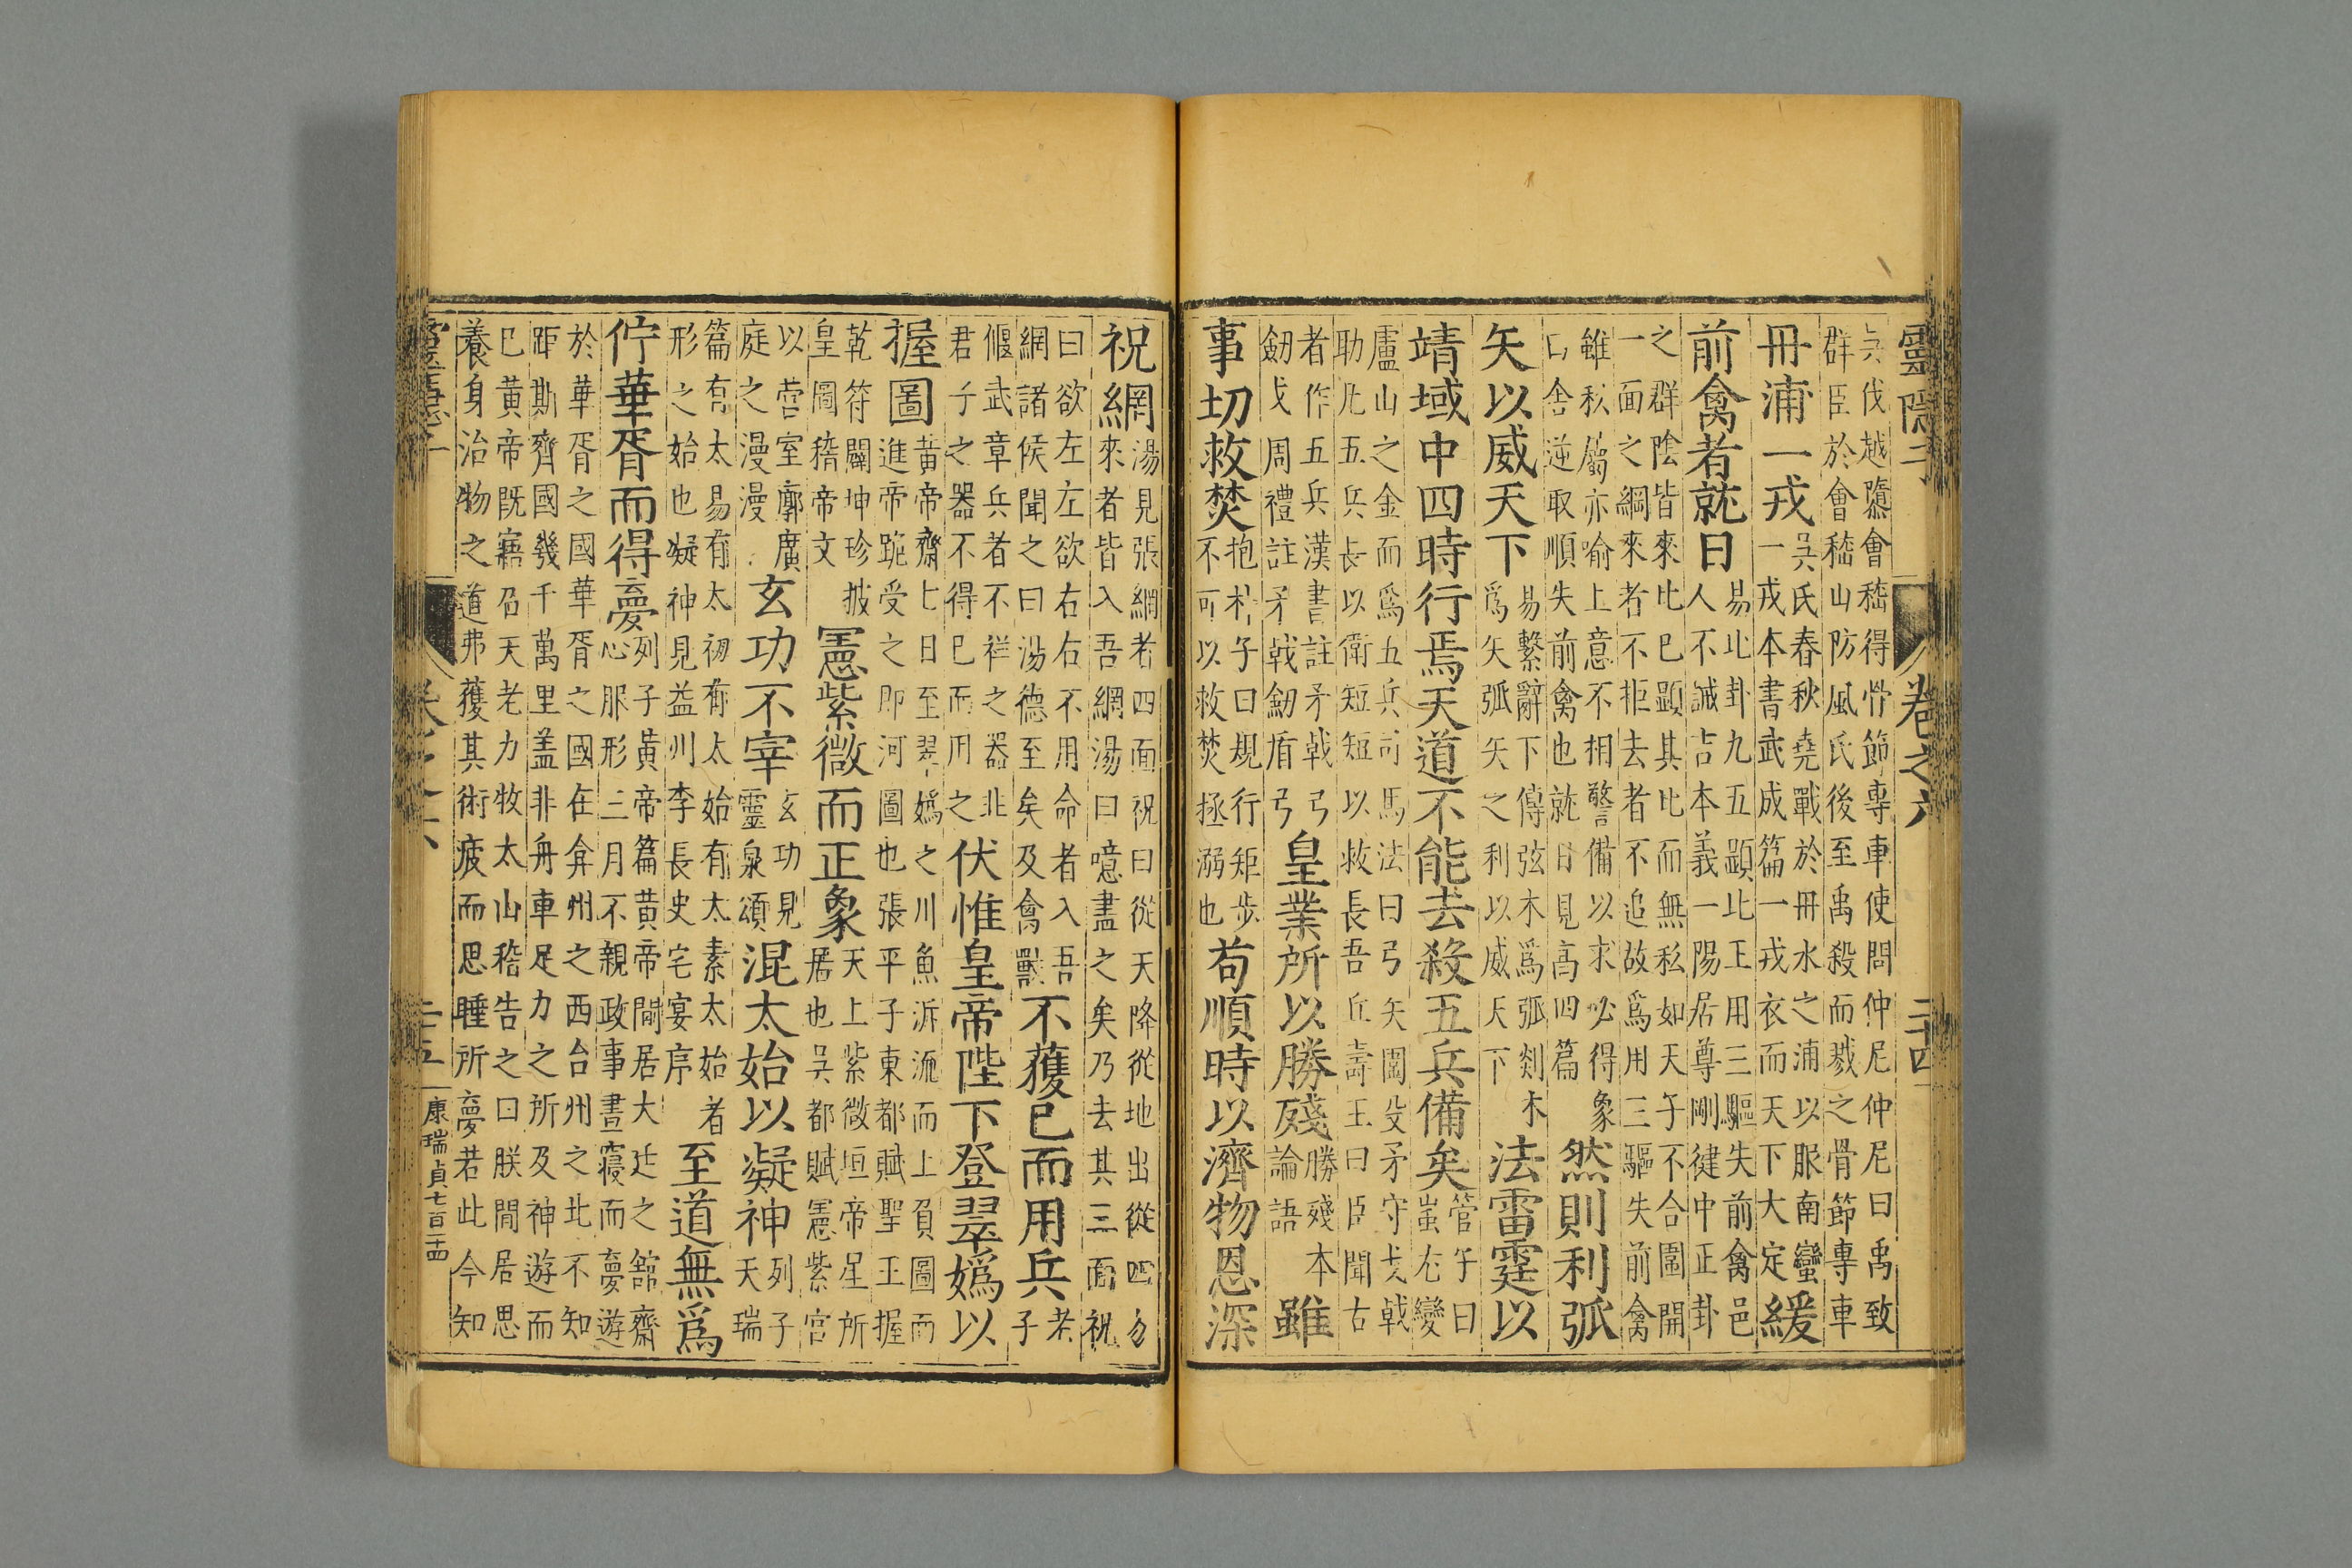 靈隱子 卷之六 二十四
吳伐越隳會稽得骨節專車使問仲尼仲尼曰禹致
群臣於會稽山防風氏後至禹殺而戮之骨節專車
丹浦一戎
吳氏春秋堯戰於丹水之浦以服南蠻
一戎本書武成篇一戎衣而天下大定
緩
前禽者就日
易比卦九五顯比王用三驅失前禽邑
人不誡吉本義一陽居尊剛健中正卦
之群陰皆來比巳顯其比而無私如天子不合圍開
一面之綱來者不拒去者不追故爲用三驅失前禽
雖私屬亦喻上意不相警備以求必得象
曰舍逆取順失前禽也就日見高四篇
然則利弧
矢以威天下
易繫辭下傳弦木爲弧剡木
爲矢弧矢之利以威天下
法雷霆以
靖域中四時行焉天道不能去殺五兵備矣
管子曰
蚩尤變
盧山之金而爲五兵司馬法曰弓矢圍殳矛守戈戟
助凡五兵長以衛短短以救長吾丘壽王曰臣聞古
者作五兵漢書註矛戟弓
劒戈周禮註矛戟劒盾弓
皇業所以勝殘
勝殘本
論語
雖
事切救焚
抱朴子曰規行矩步
不可以救焚拯溺也
苟順時以濟物恩深
祝網
湯見張網者四面祝曰從天降從地出從四方
來者皆入吾網湯曰噫盡之矣乃去其三面祝
曰欲左左欲右右不用命者入吾
網諸侯聞之曰湯德至矣及禽獸
不獲已而用兵
老
子
偃武章兵者不祥之器非
君子之器不得已而用之
伏惟皇帝陛下登翠嬀以
握圖
黃帝齋七日至翠嬀之川魚泝洍而上負圖而
進帝跪受之即河圖也張平子東都賦聖王握
乾符闡坤珍披
皇圖稽帝文
憲紫微而正象
天上紫微垣帝星所
居也吳都賦憲紫宮
以營室廓廣
庭之漫漫
玄功不宰
玄功見
靈泉頌
混太始以凝神
列子
天瑞
篇有太易有太初有太始有太素太始者
形之始也凝神見益州李長史宅宴序
至道無爲
佇華胥而得夢
列子黃帝篇黃帝間居大廷之舘齋
心服形三月不親政事晝寢而夢遊
於華胥之國華胥之國在弇州之西台州之北不知
距斯齊國幾千萬里盖非舟車足力之所及神遊而
巳黃帝既寤召天老力牧太山稽告之曰朕閒居思
養身治物之道弗獲其術疲而思睡所夢若此今知
康瑞貞七百二十四